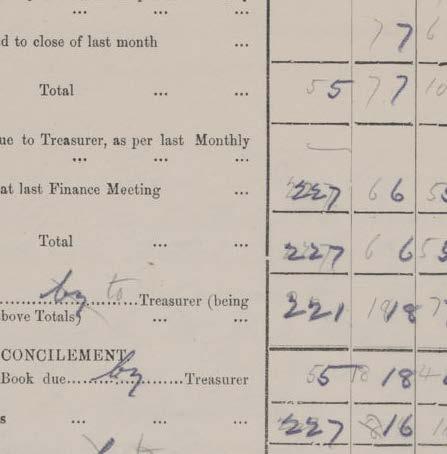 7 7 6
d to close of last month ...
Total ... ... 55 7 7 10
ue to Treasurer, as per last Monthly
... ... ...
at last Finance Meeting ... 227 6 6 5
Total ... ... 227 6 6 5
by to Treasurer (being
bove Totals) ... ... 221 18 18 7
CONCILEMENT
Book due by Treasurer 55 18 18 4
s ... ... ... 227 8 16